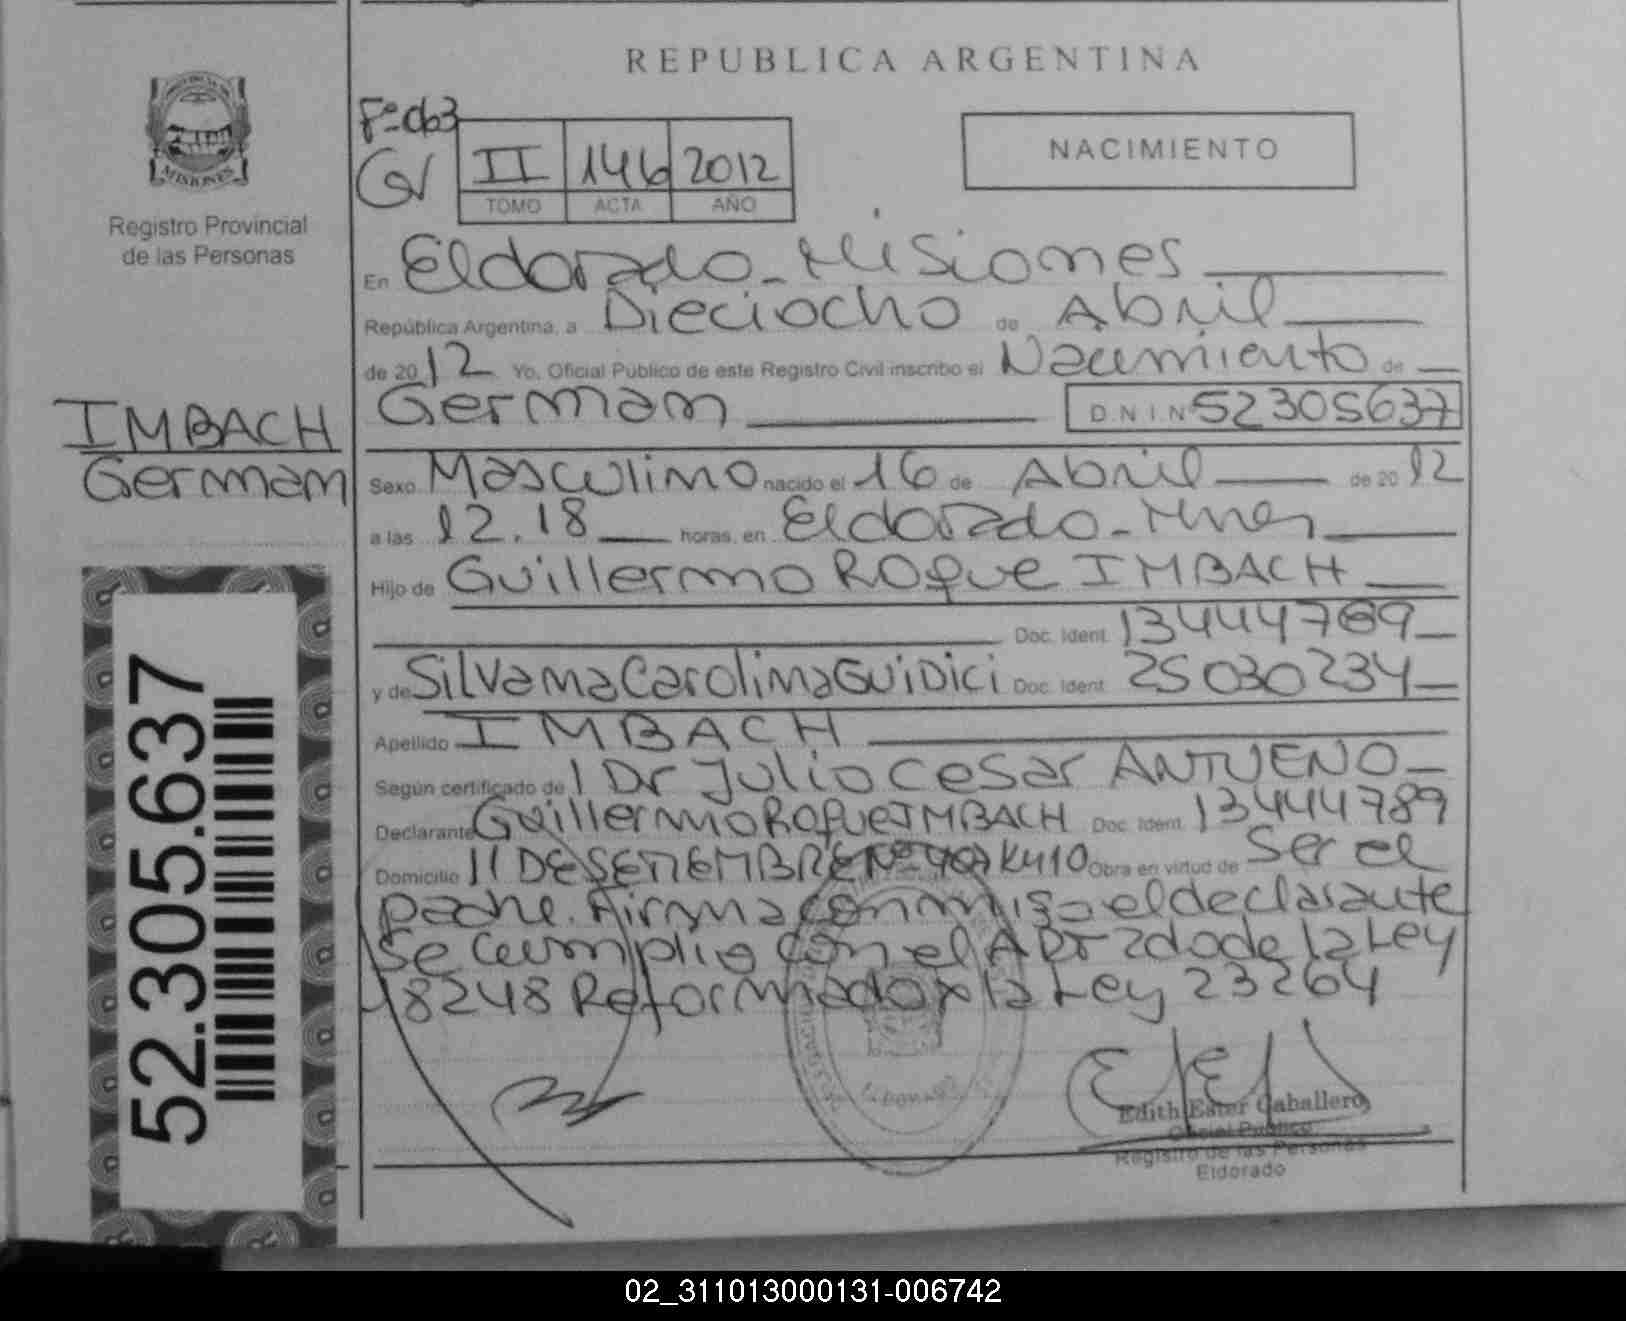 REPUBLICA ARGENTINA
Fº 063
II 146 2012
TOMO ACTA AÑO
NACIMIENTO
MISIONES
Registro Provincial
de las Personas
En Eldorado - Misiones
República Argentina, a Dieciocho de Abril
de 2012 Yo, Oficial Público de este Registro Civil inscribo el Nacimiento de
German D.N.I. Nº 52305637
IMBACH
German
Sexo Masculino nacido el 16 de Abril de 2012
a las 12.18 horas, en Eldorado - Mnes
Hijo de Guillermo Roque IMBACH
Doc. Ident. 13444789
y de Silvana Carolina GUIDICI Doc. Ident. 25030234
Apellido IMBACH
Según certificado de l Dr Julio Cesar ANTUENO
Declarante Guillermo Roque IMBACH Doc. Ident. 13444789
Domicilio 11 DE SETIEMBRE Nº K410 Obra en virtud de Ser el
padre. Firma conmigo el declarante
Se cumplio con el Art 2do de la Ley
18248 Reformado x la Ley 23264
52.305.637
ELDORADO
Edith Ester Caballero
Oficial Público
Registro de las Personas
Eldorado
02_311013000131-006742